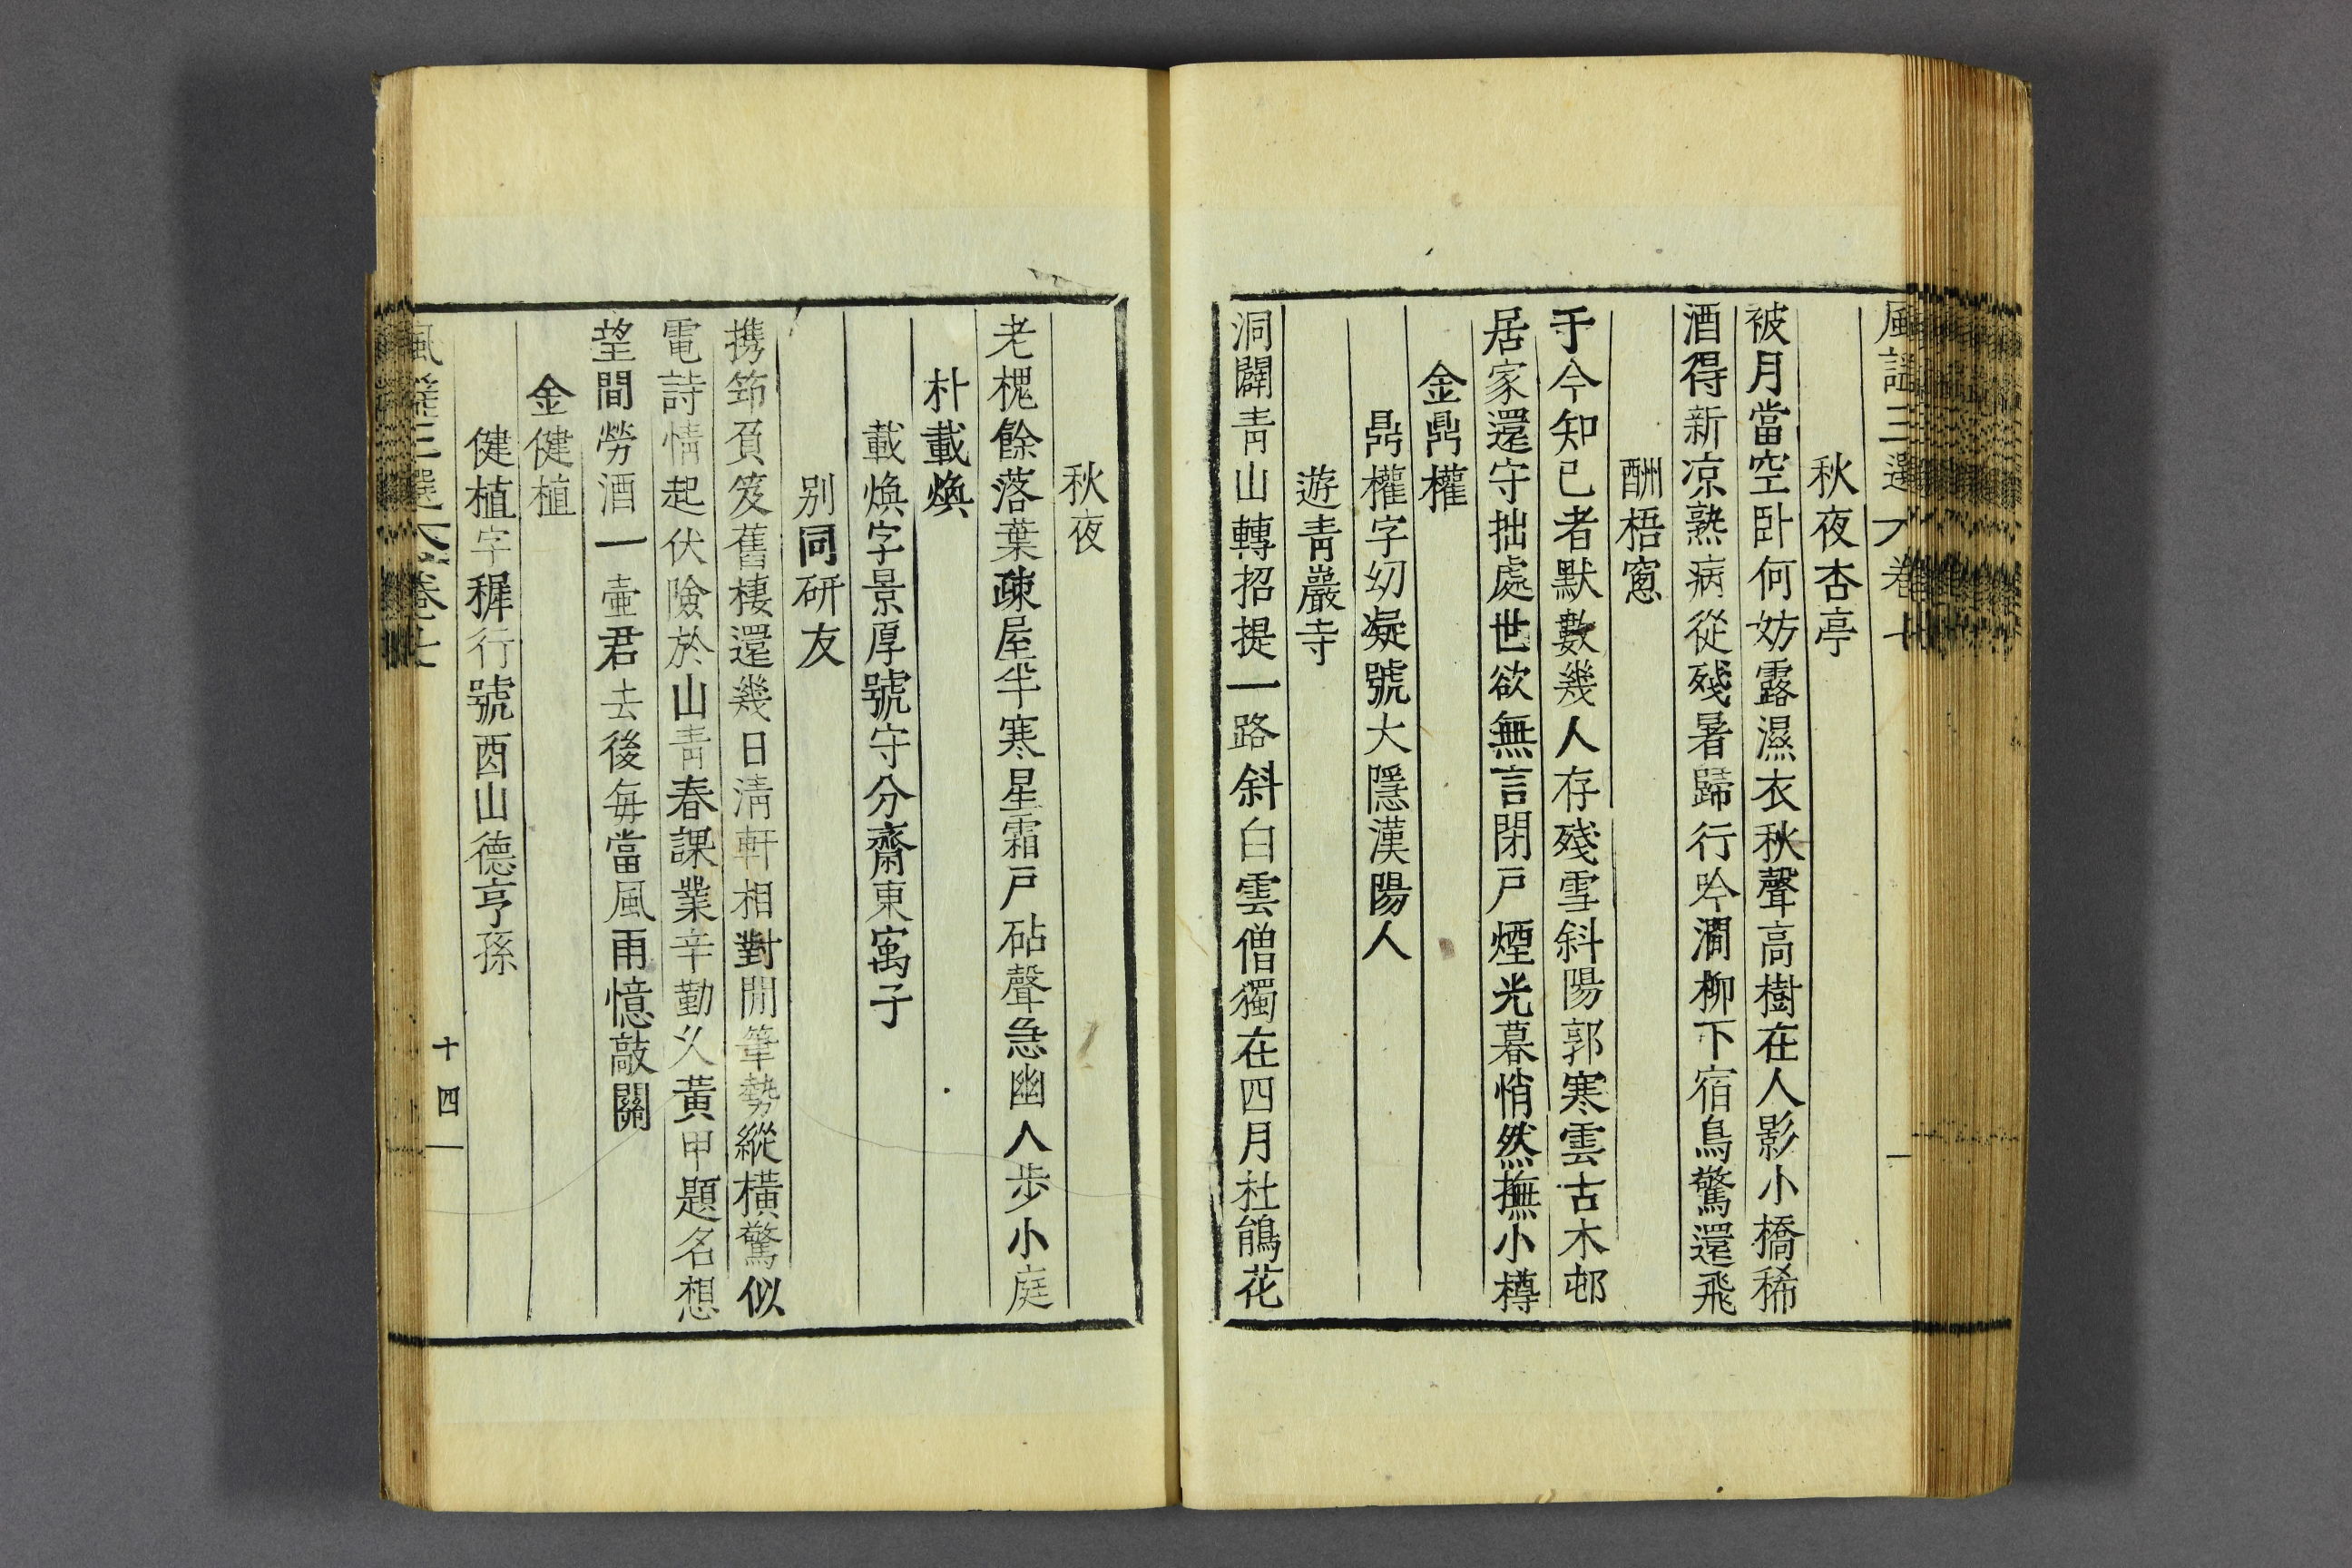 風謠三選 卷十
秋夜杏亭
被月當空卧何妨露濕衣秋聲高樹在人影小橋稀
酒得新凉熟病從殘暑歸行吟澗柳下宿鳥驚還飛
酬梧窓
于今知已者默數幾人存殘雪斜陽郭寒雲古木邨
居家還守拙處世欲無言閉戶煙光暮悄然撫小樽
金鼎權
鼎權字幼凝號大隱漢陽人
遊靑巖寺
洞闢靑山轉招提一路斜白雲僧獨在四月杜鵑花
秋夜
老槐餘落葉疎屋半寒星霜戶砧聲急幽人步小庭
朴載煥
載煥字景厚號守分齋東寓子
别同研友
携筇負笈舊棲還幾日淸軒相對閒筆勢縱橫驚似
電詩情起伏險於山靑春課業辛勤久黃甲題名想
望間勞酒一壺君去後每當風雨憶敲關
金健植
健植字穉行號酉山德亨孫
風謠三選 卷十
十四